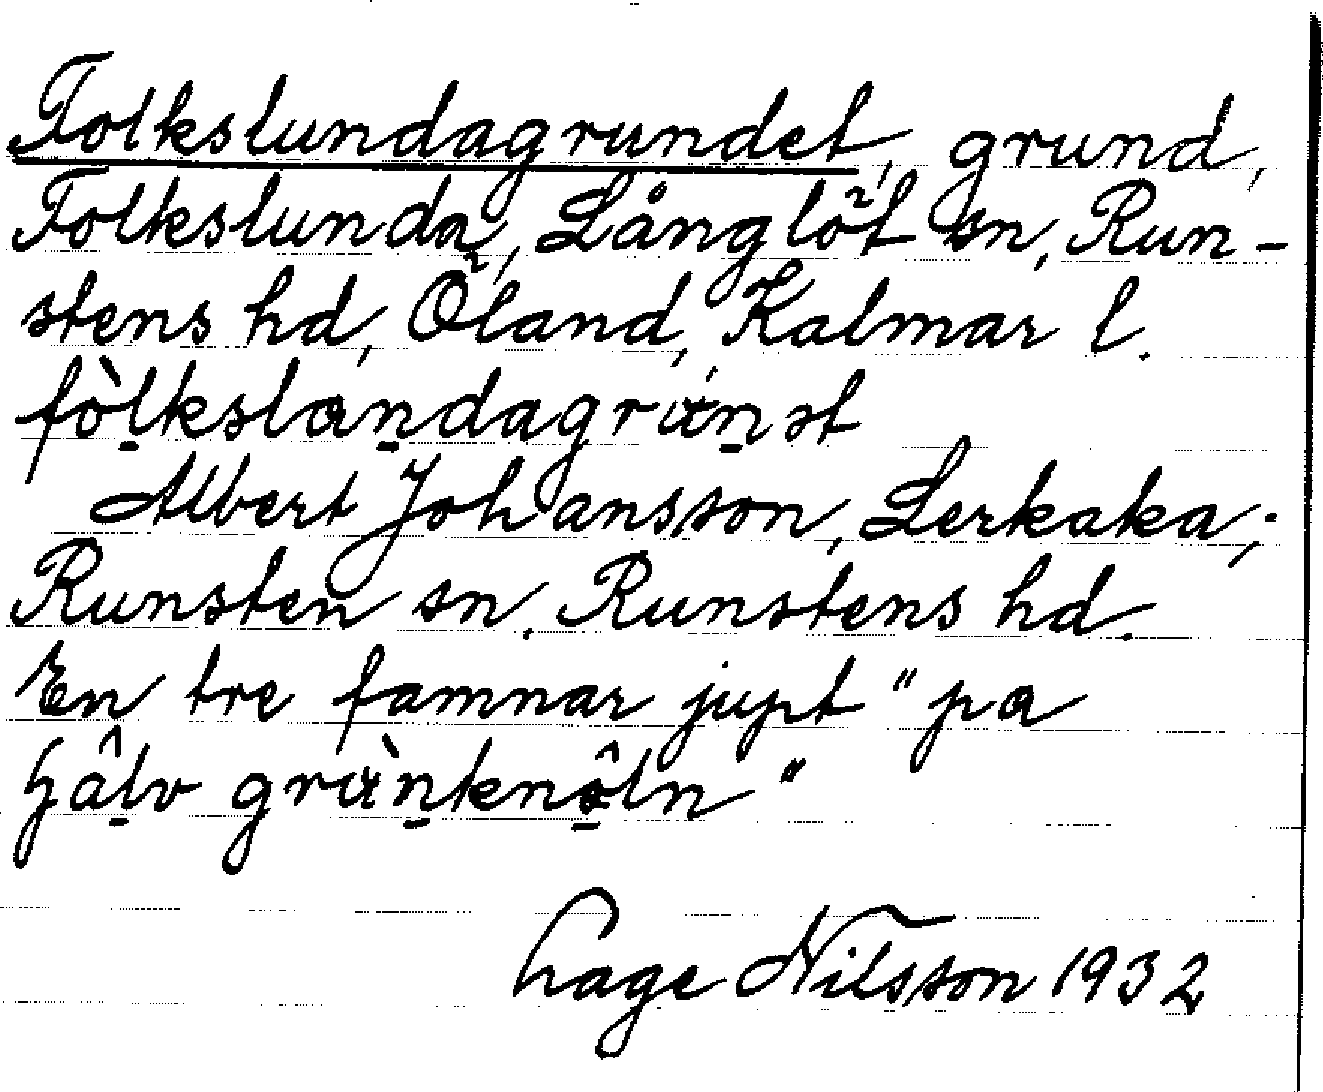 Folkslundagrundet, grund,
Folkslunda, Långlöt sn, Run-
stens hd, Öland, Kalmar l.
fòl̠kslan̠dagrán̠st
Albert Johansson, Lerkaka,
Runsten sn. Runstens hd.
En tre famnar jupt "pa
hâl̠v gràn̠knô̠ln"
Hage Nilsson 1932